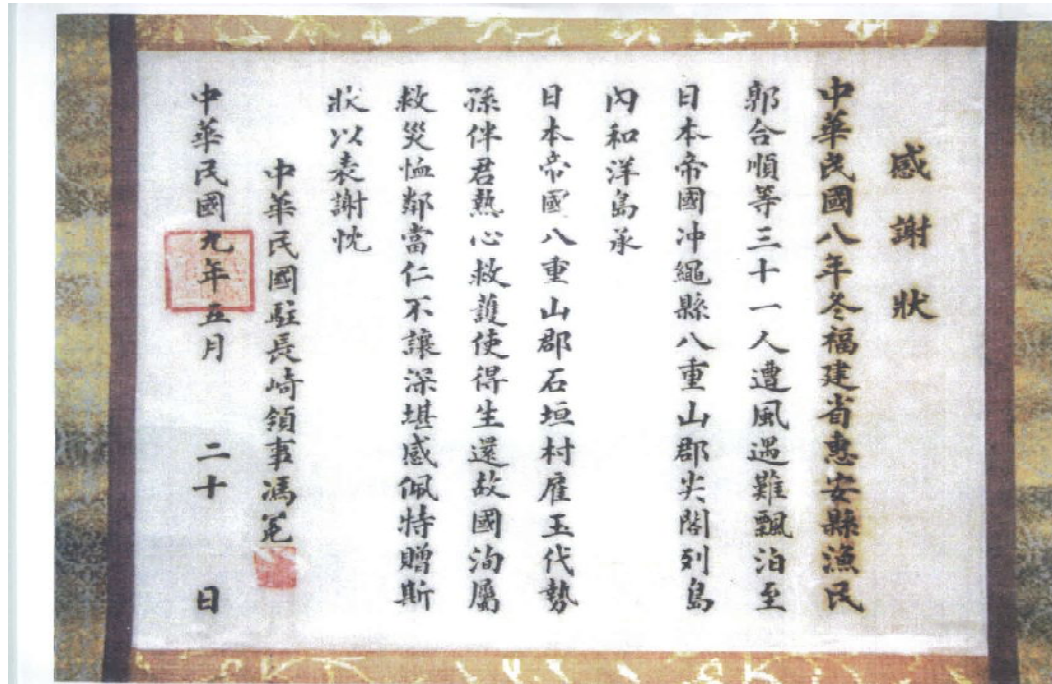 感謝狀
中華民國八年冬福建省惠安縣漁民
郭合順等三十一人遭風遇難飄泊至
日本帝國冲繩縣八重山郡尖閣列島
內和洋島承
日本帝國八重山郡石垣村雇玉代勢
孫伴君熱心救護使得生還故國洵屬
救災恤鄰當仁不讓深堪感佩特贈斯
狀以表謝忱
中華民國駐長崎領事馮冕
中華民國九年五月二十日